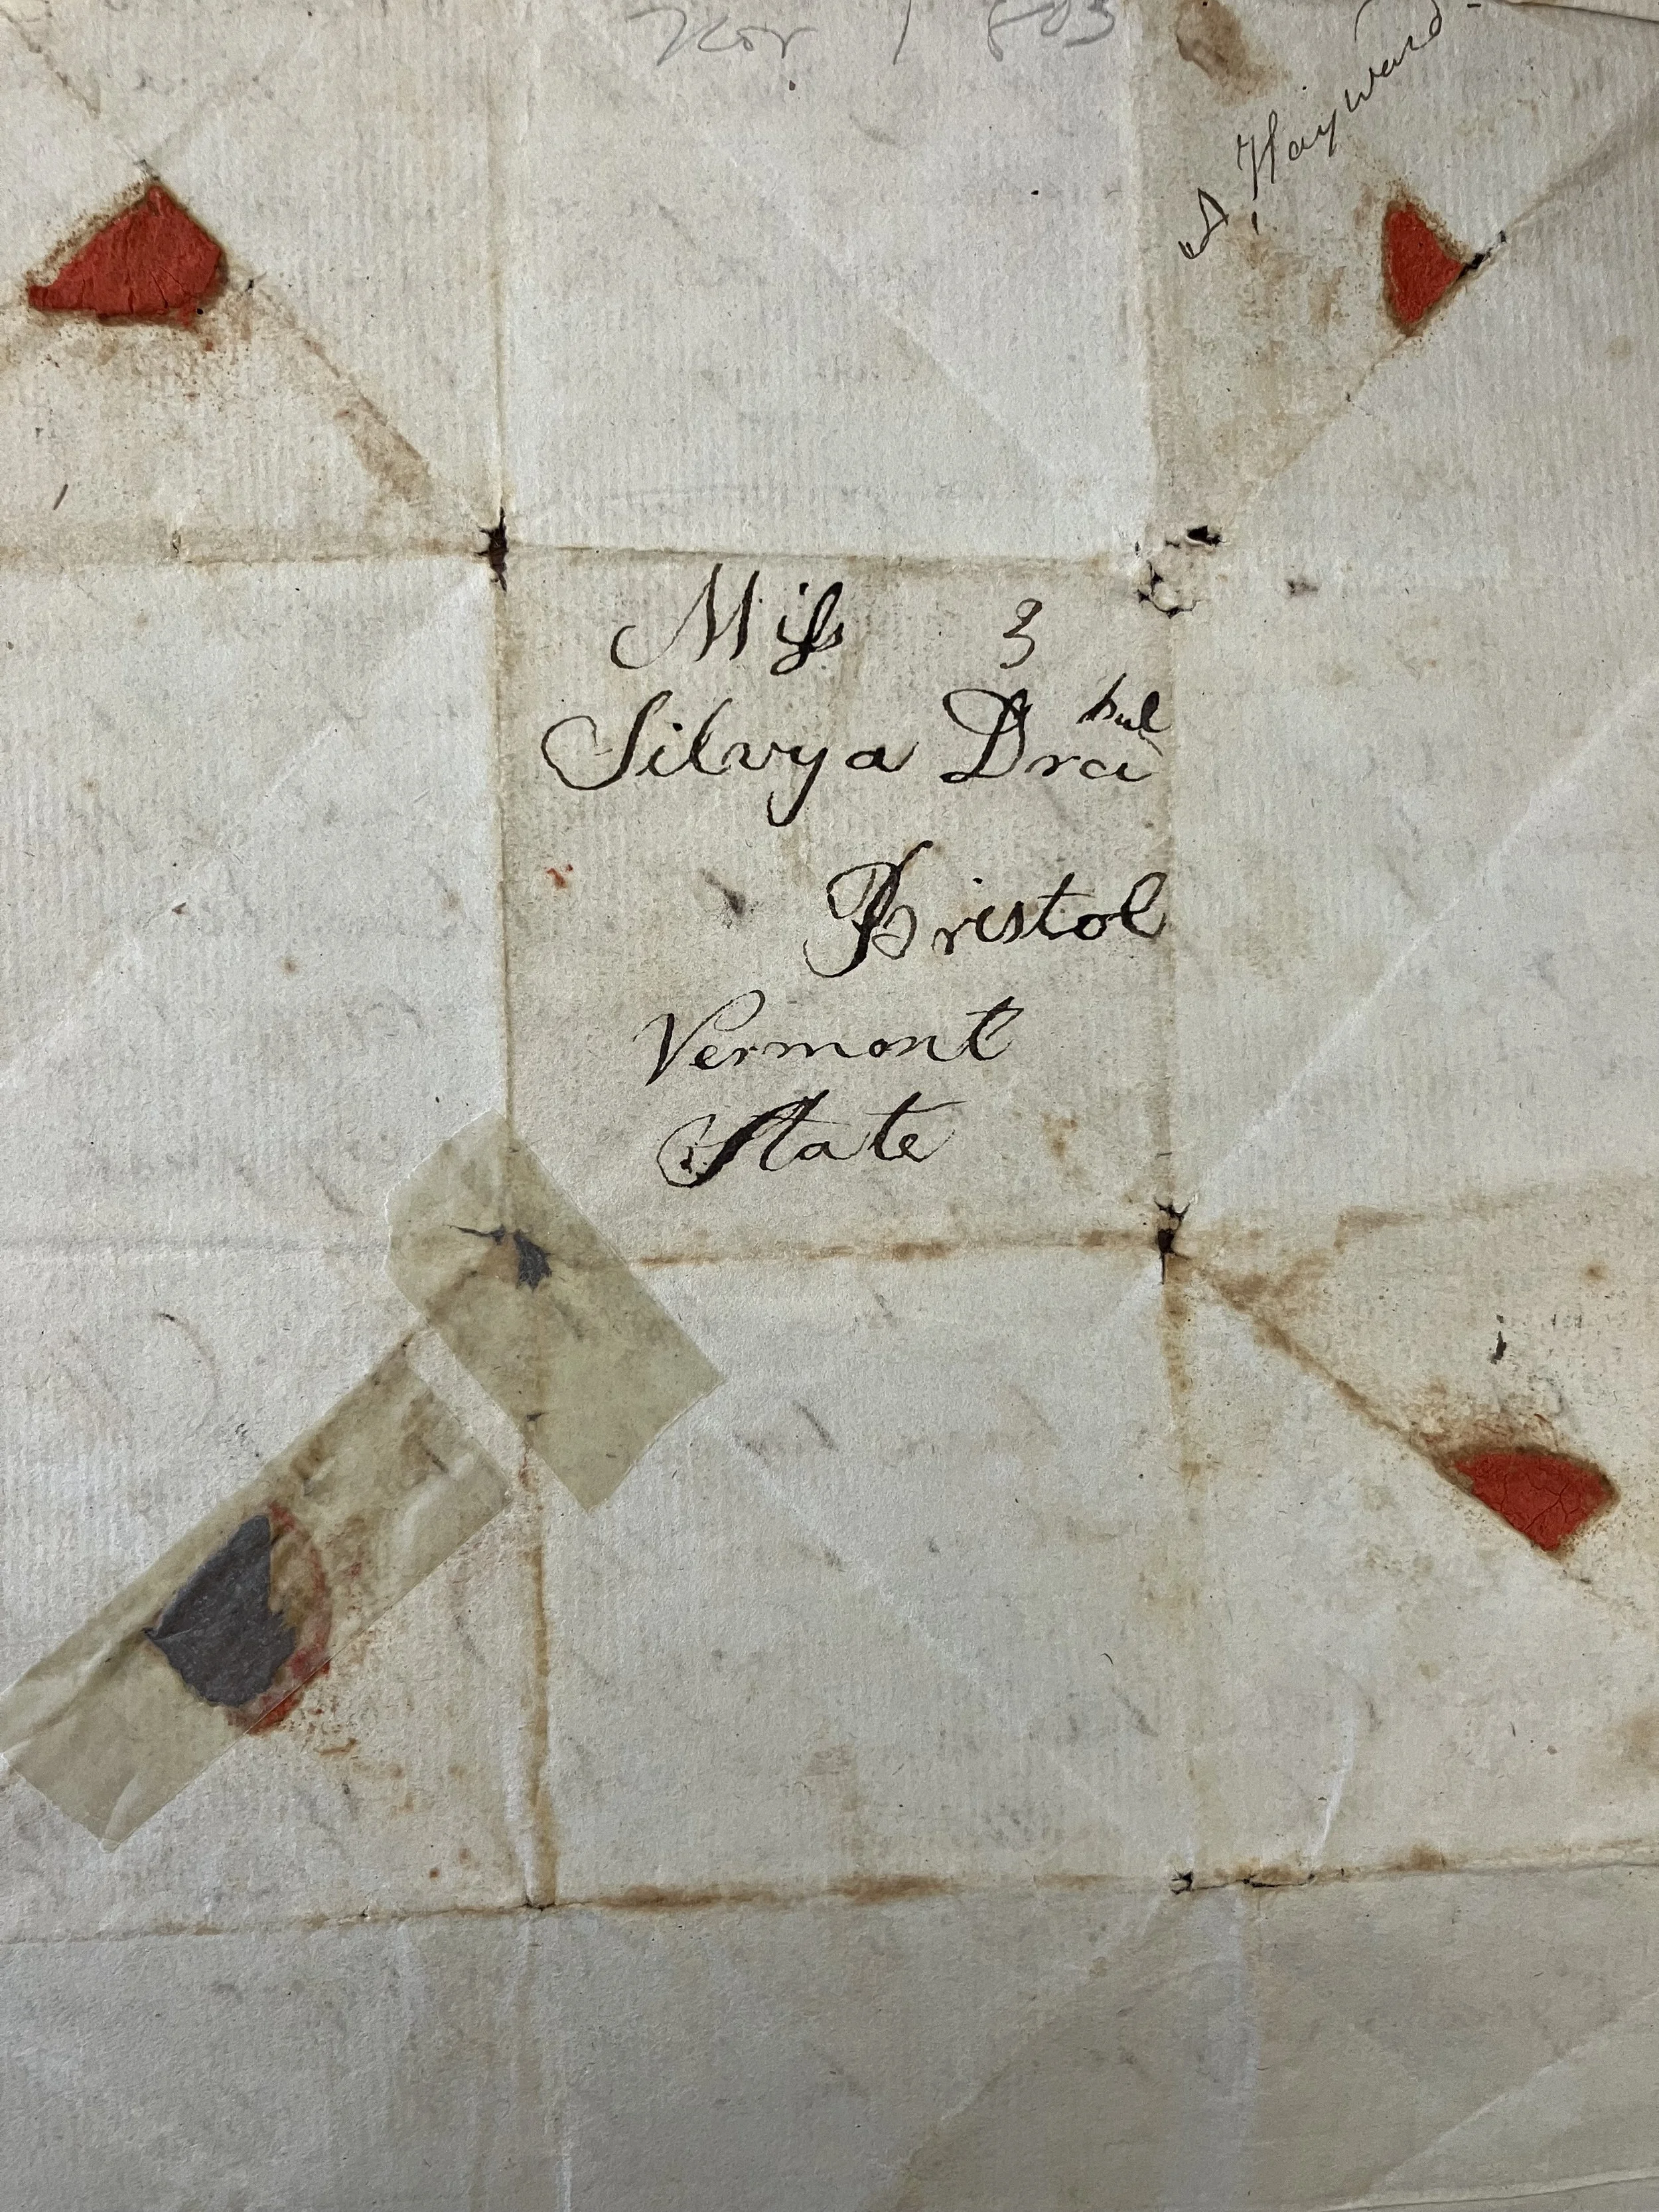 Nov 1803
Hayward
Miſs 3
Silvya
Bristol
Vermont
State